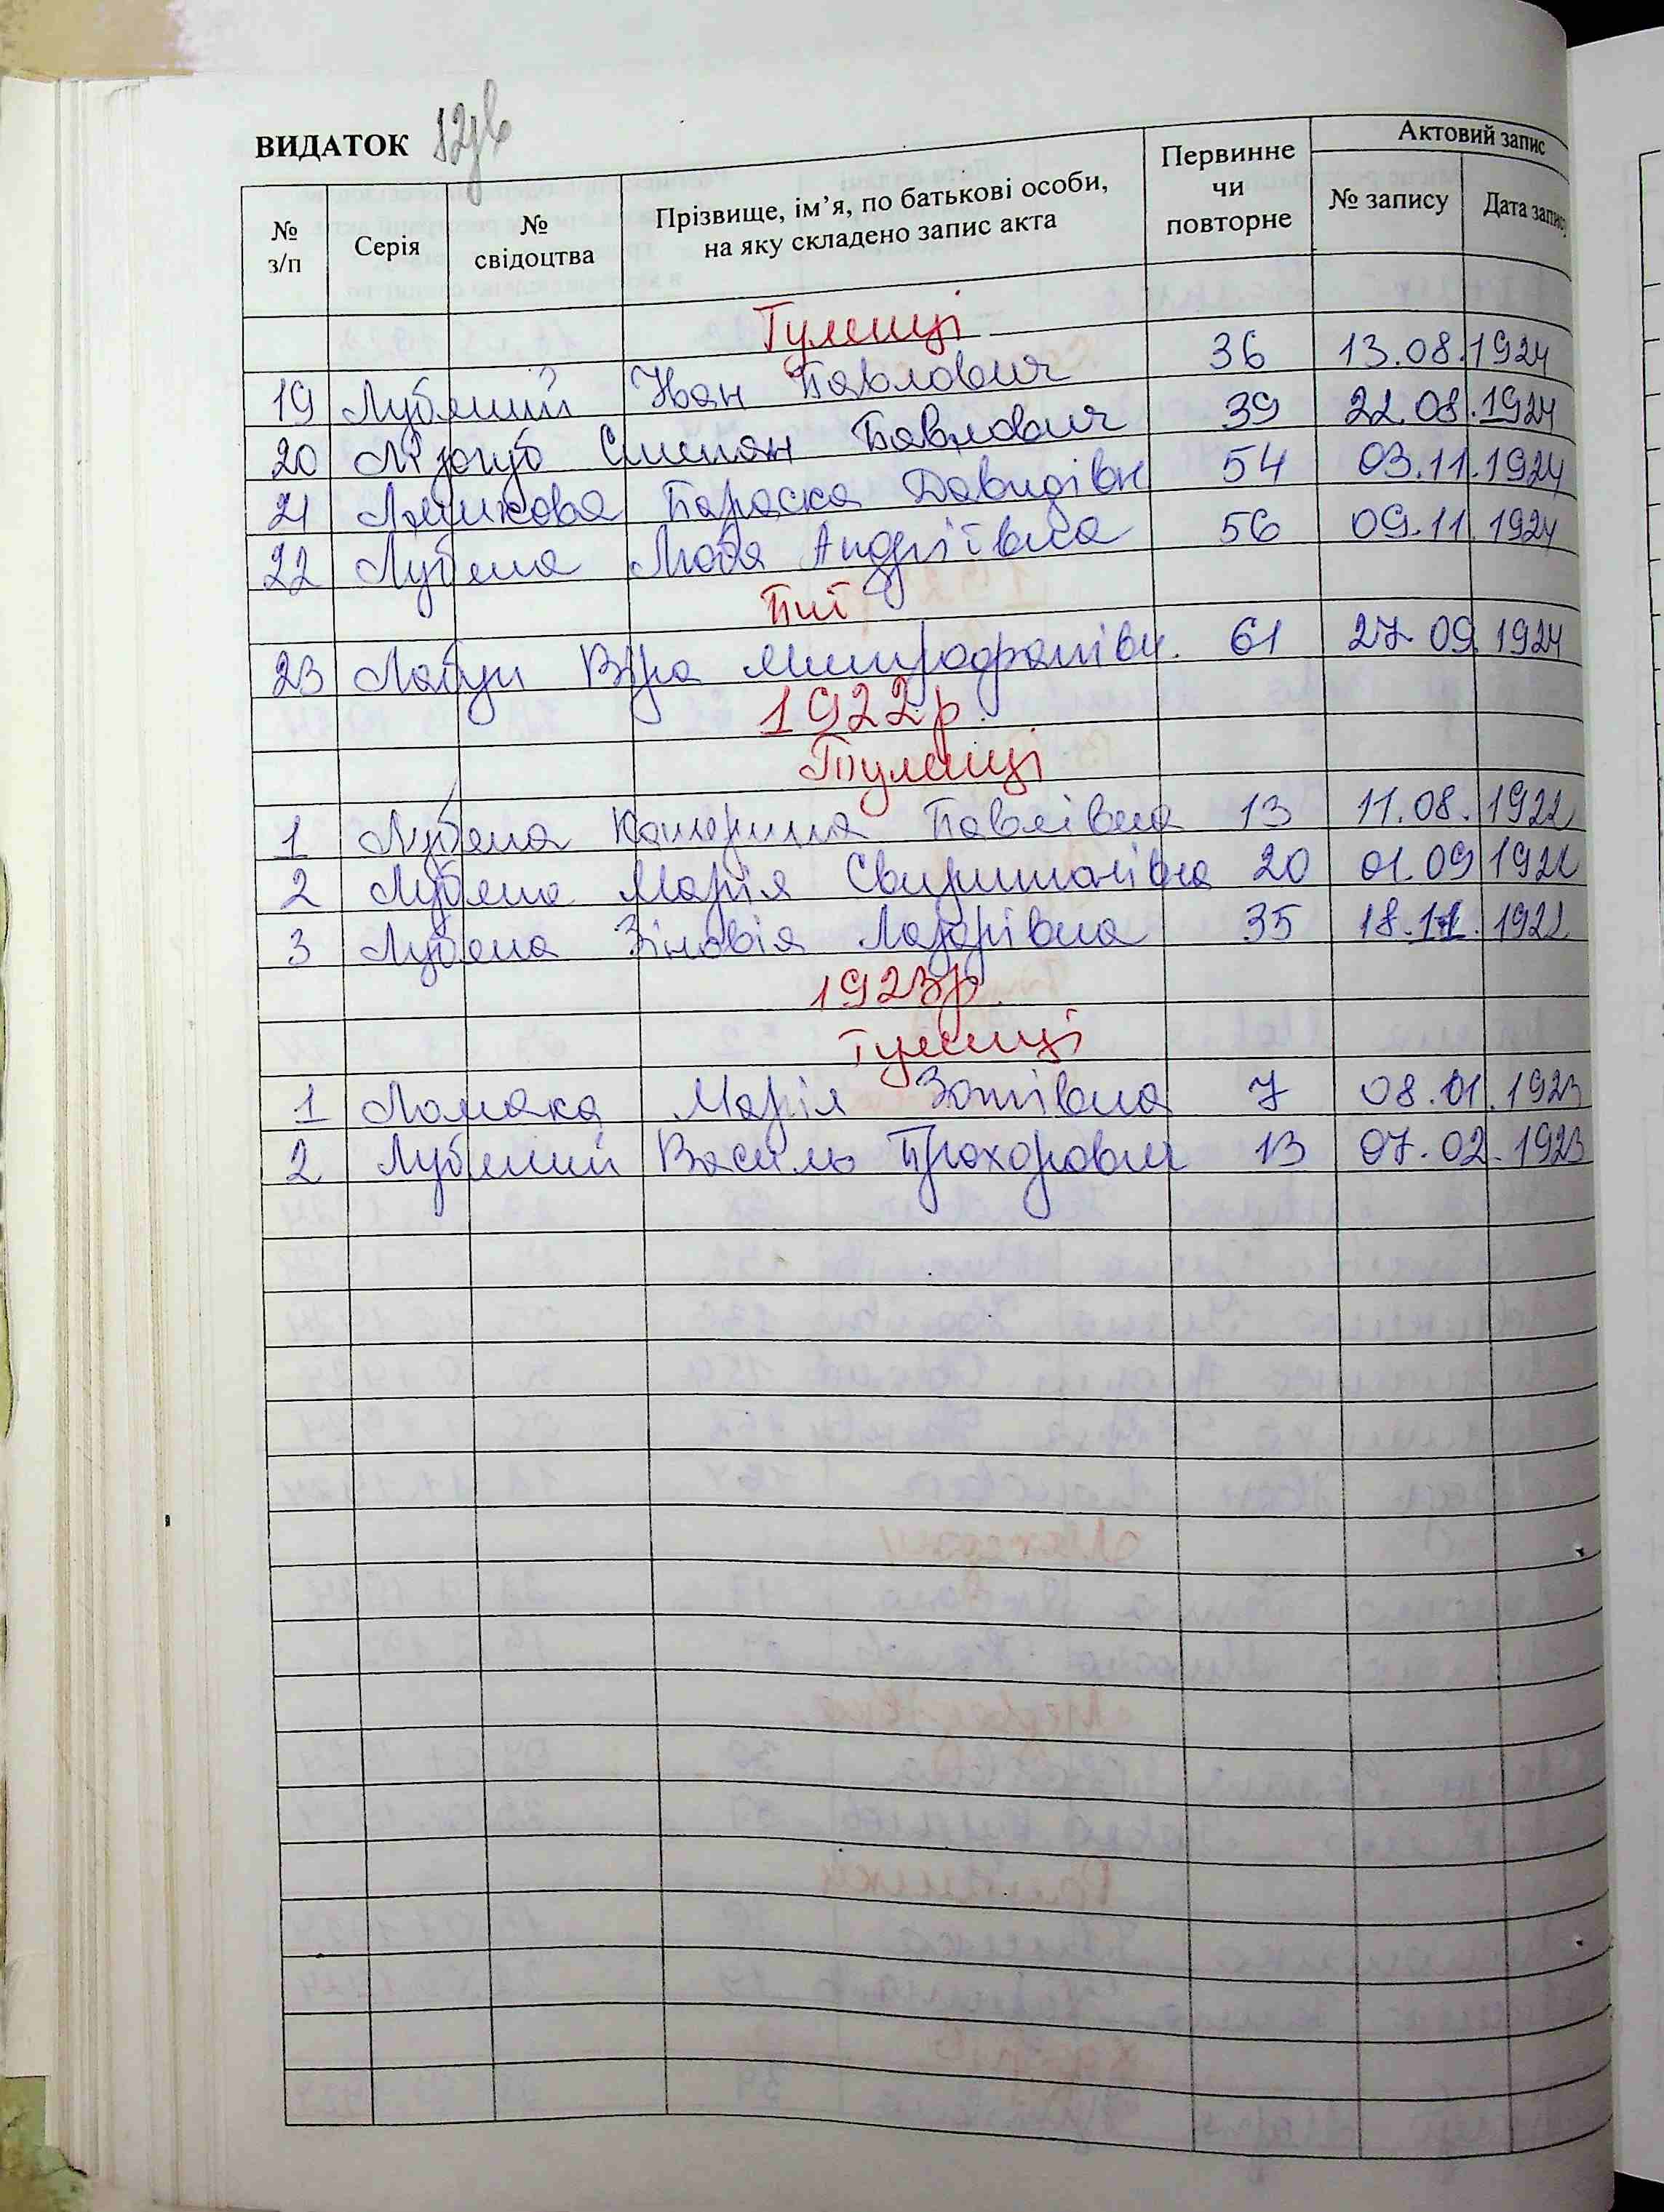 ВИДАТОК
№ з/п Серія № свідоцтва Прізвище, ім’я, по батькові особи, на яку складено запис акта Первинне чи повторне Актовий запис № запису Дата запису
Тулинці
19 Лубяний Іван Павлович 36 13.08.1924
20 Лізогуб Степан Павлович 39 22.08.1924
21 Параска Давидівн 54 03.11.1924
22 Лубяна Любов Андріївна 56 09.11.1924
Пії
23 Лабун Віра Митрофанівн. 61 27.09.1924
1922р.
Тулинці
1 Лубяна Катерина Павлівна 13 11.08.1922
2 Лубяна Марія 20 01.09.1922
3 Лубяна Зіновія Лазарівна 35 18.11.1922
1923р.
Тулинці
1 Ломака Марія Зотівна 7 08.01.1923
2 Лубяний Василь Прохорович 13 07.02.1923